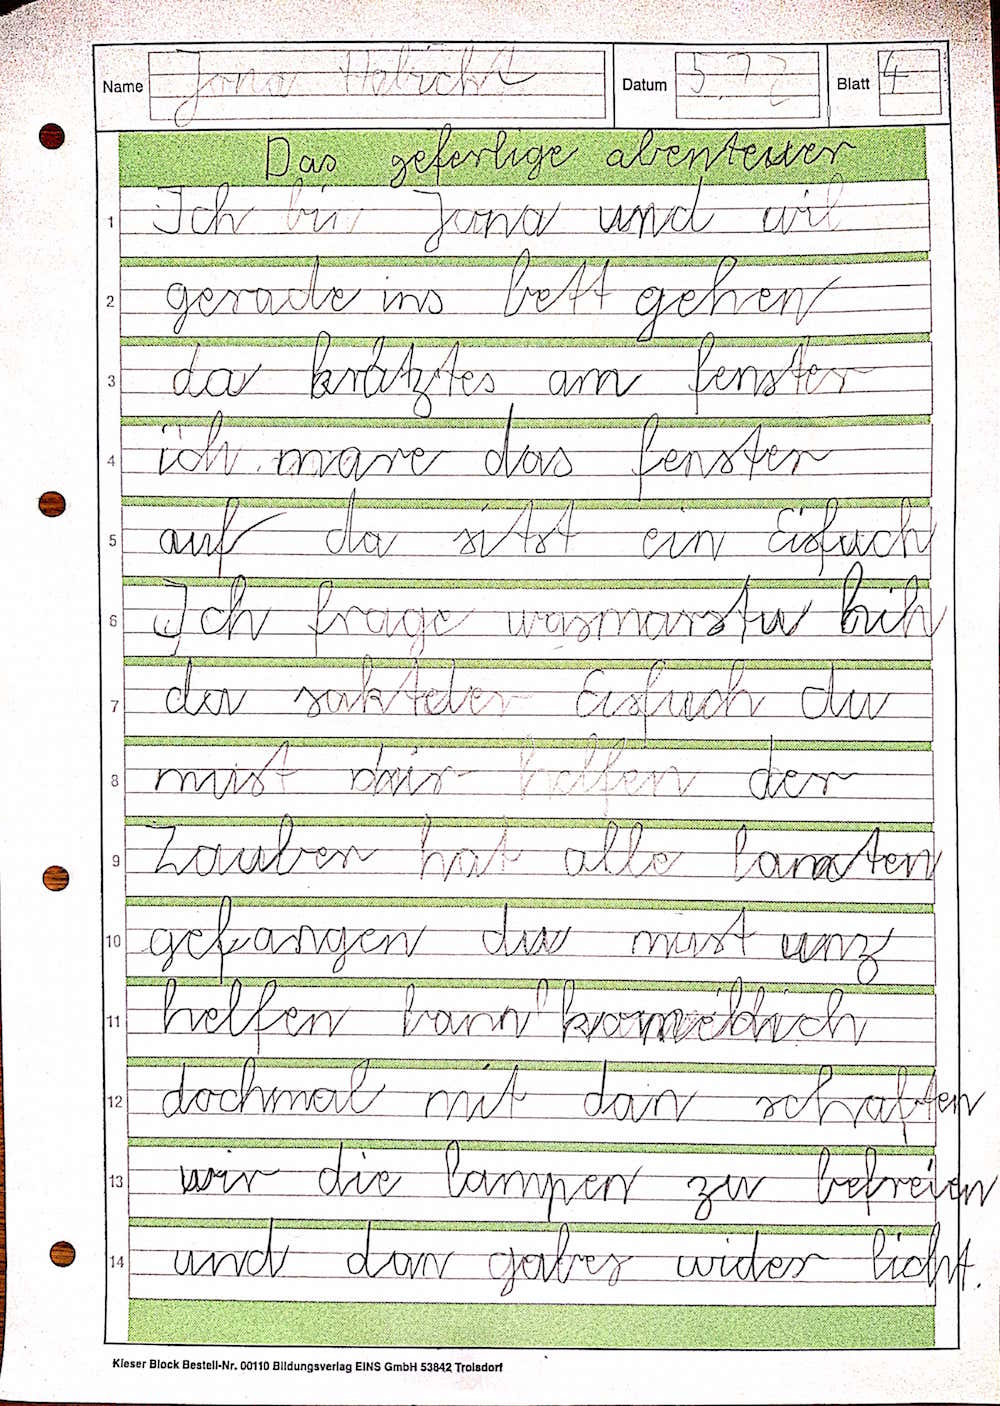 Name Jona Habicht Datum 5.12 Blatt 4
Das geferlige abenteuer
1 Ich bin Jona und wil
2 gerade ins bett gehen
3 da krätztes am fenster
4 ich mare das fenster
5 auf da sitst ein Eisfuch
6 Ich frage wasmarstu hih
7 da sakteder Eisfuch du
8 must mir helfen der
9 Zauber hat alle lamten
10 gefangen du must unz
11 helfen kann komédich
12 dochmal mit dan schaften
13 wir die lampen zu befreien
14 und dan gabes wider licht.
Kieser Block Bestell-Nr. 00110 Bildungsverlag EINS GmbH 53842 Troisdorf